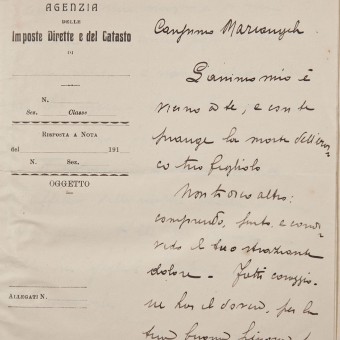 AGENZIA
DELLE
Imposte Dirette e del Catasto
DI
N.
Sez. Classe
RISPOSTA A NOTA
del 191
N. Sez.
OGGETTO
ALLEGATI N.
Carissimo Mariangelo
L'animo mio è
vicino a te, e con te
piange la morte dell'eroi
co tuo figliolo
Non ti dico altro:
comprendo, sento e condi
vido il tuo straziante
dolore. Fatti coraggio
ne hai il dovere, per la
tua buona